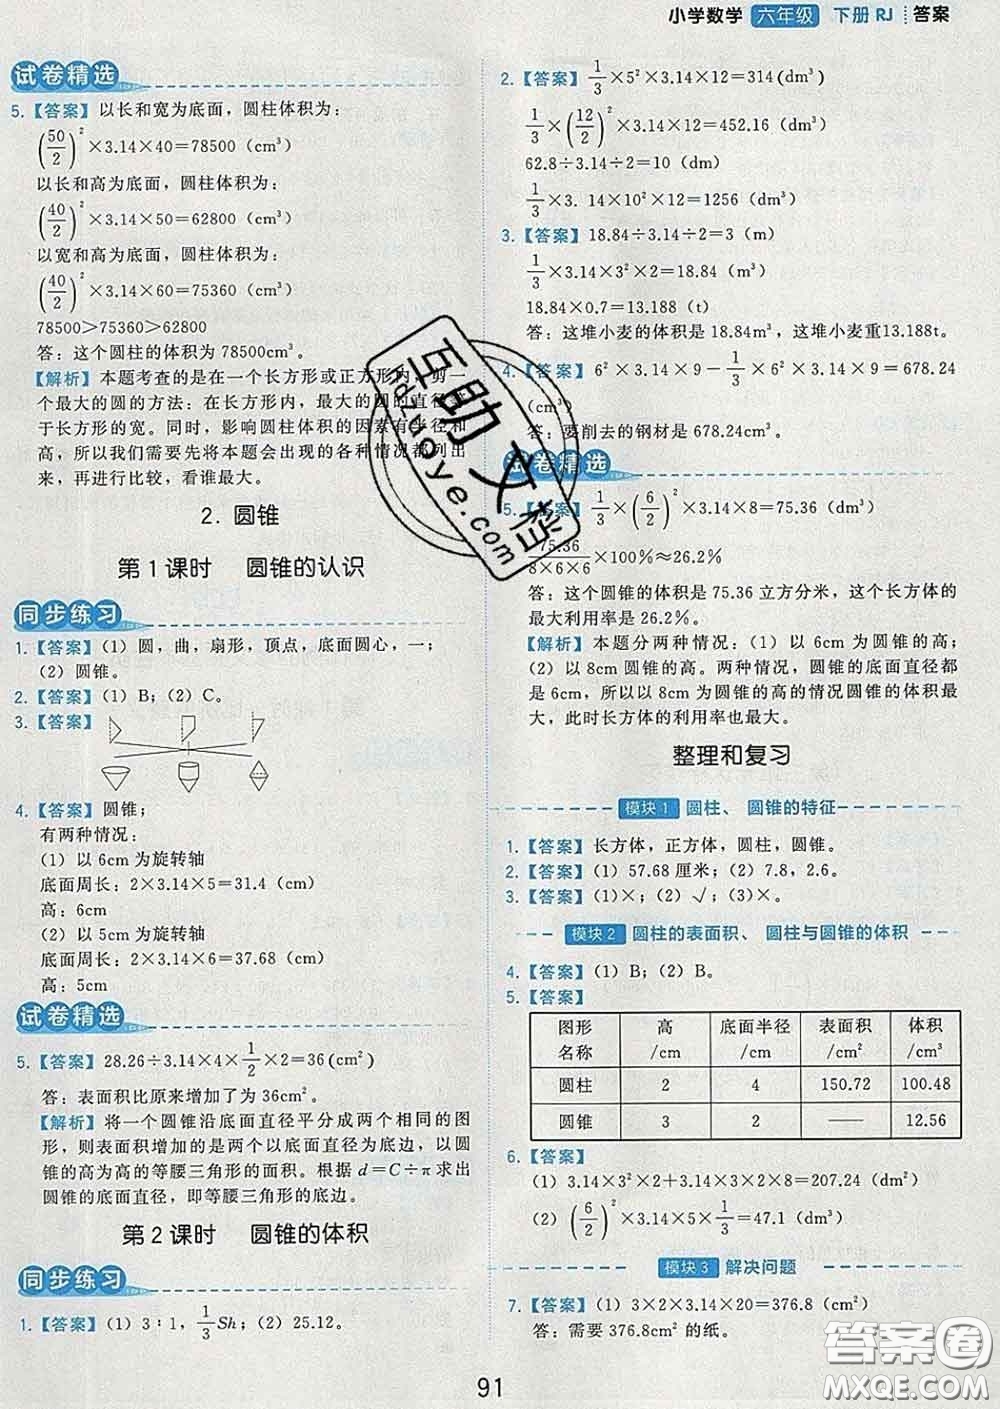 小学数学 六年级 下册 RJ 答案
试卷精选
5.【答案】以长和宽为底面，圆柱体积为：
(50/2)²×3.14×40=78500（cm³）
以长和高为底面，圆柱体积为：
(40/2)²×3.14×50=62800（cm³）
以宽和高为底面，圆柱体积为：
(40/2)²×3.14×60=75360（cm³）
78500>75360>62800
答：这个圆柱的体积为78500cm³。
【解析】本题考查的是在一个长方形或正方形内，剪一
个最大的圆的方法：在长方形内，最大的圆的直径等
于长方形的宽。同时，影响圆柱体积的因素有半径和
高，所以我们需要先将本题会出现的各种情况都列出
来，再进行比较，看谁最大。
2. 圆锥
第1课时 圆锥的认识
同步练习
1.【答案】（1）圆，曲，扇形，顶点，底面圆心，一；
（2）圆锥。
2.【答案】（1）B；（2）C。
3.【答案】
4.【答案】圆锥；
有两种情况：
（1）以6cm为旋转轴
底面周长：2×3.14×5=31.4（cm）
高：6cm
（2）以5cm为旋转轴
底面周长：2×3.14×6=37.68（cm）
高：5cm
试卷精选
5.【答案】28.26÷3.14×4×1/2×2=36(cm²)
答：表面积比原来增加了为36cm²。
【解析】将一个圆锥沿底面直径平分成两个相同的图
形，则表面积增加的是两个以底面直径为底边，以圆
锥的高为高的等腰三角形的面积。根据d=C÷π求出
圆锥的底面直径，即等腰三角形的底边。
第2课时 圆锥的体积
同步练习
1.【答案】（1）3∶1，1/3Sh；（2）25.12。
2.【答案】1/3×5²×3.14×12=314(dm³)
1/3×(12/2)²×3.14×12=452.16（dm³）
62.8÷3.14÷2=10（dm）
1/3×3.14×10²×12=1256（dm³）
3.【答案】18.84÷3.14÷2=3（m）
1/3×3.14×3²×2=18.84（m³）
18.84×0.7=13.188（t）
答：这堆小麦的体积是18.84m³，这堆小麦重13.188t。
4.【答案】6²×3.14×9-1/3×6²×3.14×9=678.24
(cm³)
答：要削去的钢材是678.24cm³。
试卷精选
5.【答案】1/3×(6/2)²×3.14×8=75.36（dm³）
75.36/8×6×6×100%≈26.2%
答：这个圆锥的体积是75.36立方分米，这个长方体的
最大利用率是26.2%。
【解析】本题分两种情况：（1）以6cm为圆锥的高；
（2）以8cm圆锥的高。两种情况，圆锥的底面直径都
是6cm，所以以8cm为圆锥的高的情况圆锥的体积最
大，此时长方体的利用率也最大。
整理和复习
模块1 圆柱、圆锥的特征
1.【答案】长方体，正方体，圆柱，圆锥。
2.【答案】（1）57.68厘米；（2）7.8，2.6。
3.【答案】（1）×；（2）√；（3）×。
模块2 圆柱的表面积、圆柱与圆锥的体积
4.【答案】（1）B；（2）B。
5.【答案】
图形名称 高/cm 底面半径/cm 表面积/cm² 体积/cm³
圆柱 2 4 150.72 100.48
圆锥 3 2 —— 12.56
6.【答案】
（1）3.14×3²×2+3.14×3×2×8=207.24（dm²）
（2）(6/2)²×3.14×5×1/3=47.1（dm³）
模块3 解决问题
7.【答案】（1）3×2×3.14×20=376.8（cm²）
答：需要376.8cm²的纸。
91
互助文档
hdzuoye.com
答案圈
MXQE.COM